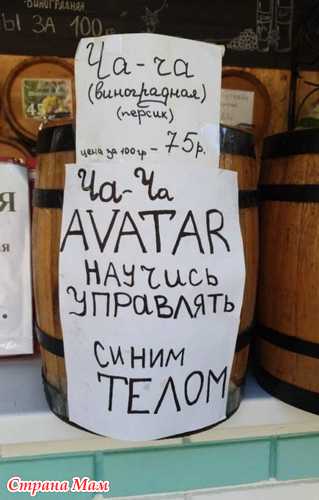 ВИНОГРАДНАЯ
Ы ЗА 100 г
Ча-ча
(виноградная)
(персик)
цена за 100гр - 75р.
Ча-Ча
AVATAR
НАУЧИСЬ
УПРАВЛЯТЬ
СИНИМ
ТЕЛОМ
Страна Мам